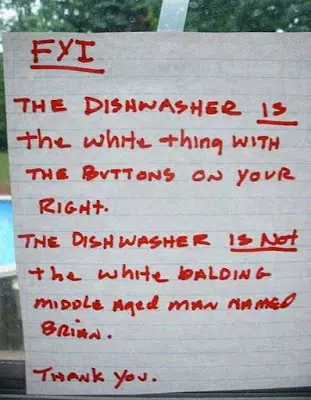 FYI
THE DISHWASHER IS
the white thing WITH
THE BUTTONS ON YOUR
RIGHT.
THE DISHWASHER IS NOT
the white BALDING
MIDDLE AGED MAN NAMED
BRIAN.
THANK YOU.